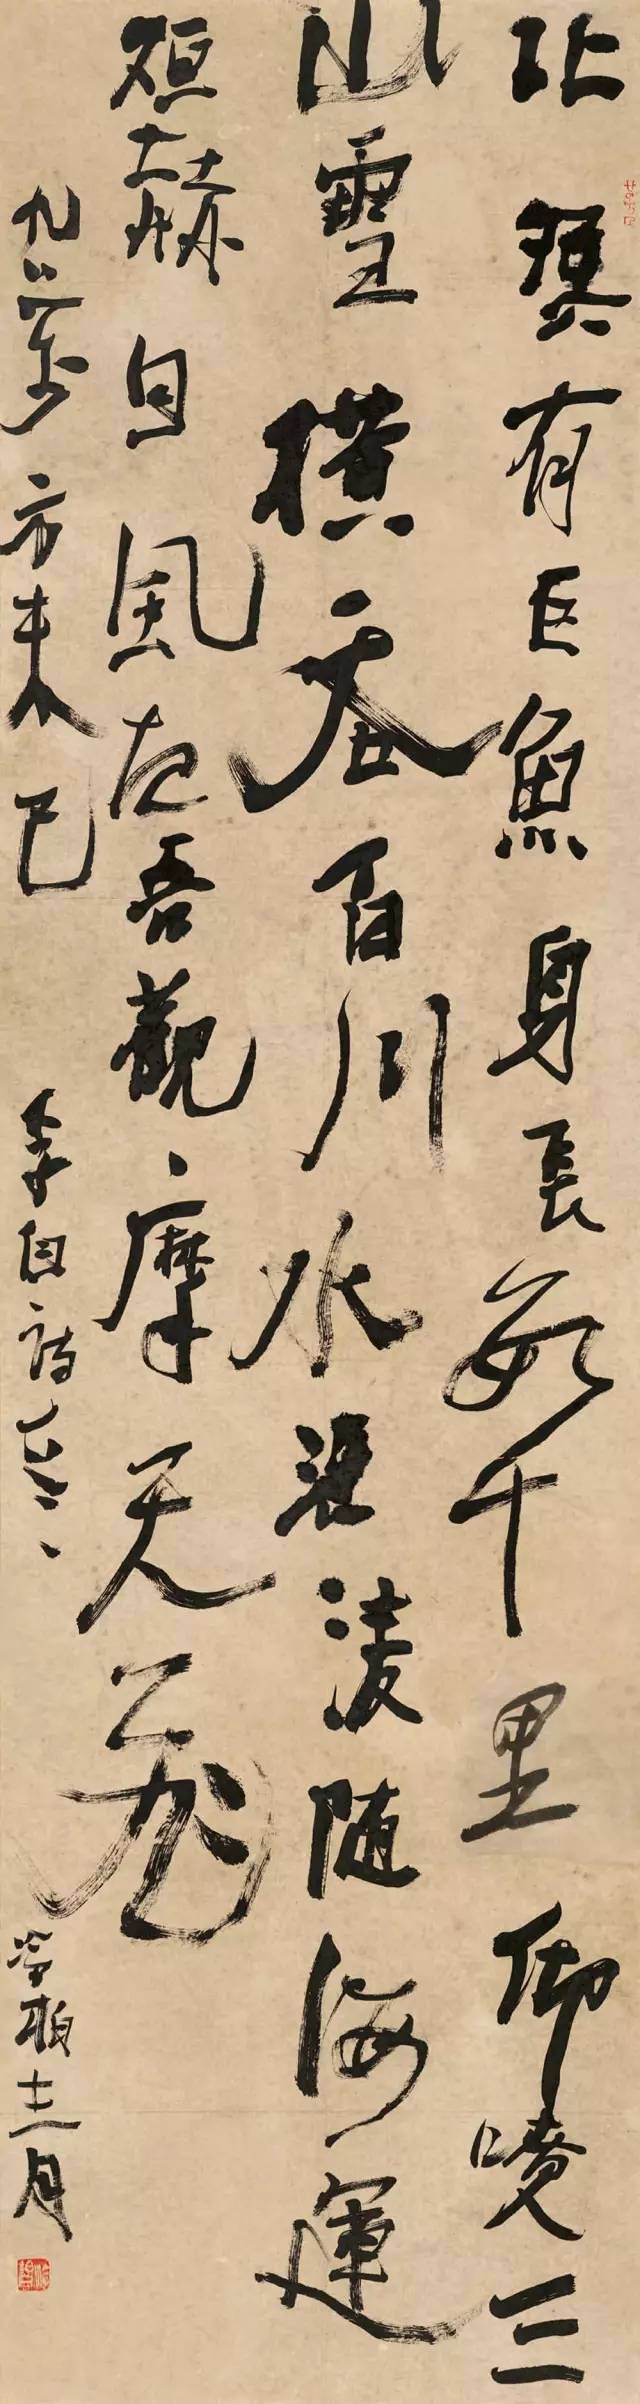 北溟有巨魚身長數千里仰噴三
山雪橫吞百川水憑凌隨海運
烜赫因風起吾觀摩天飛
九萬方未已 李白詩 柏十二月